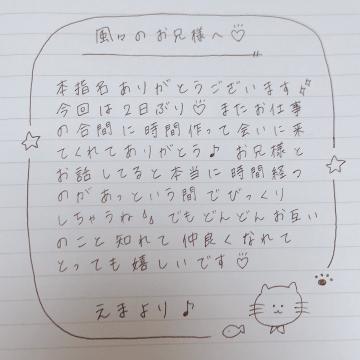 風々のお兄様へ♡
本指名ありがとうございます
今回は2日ぶり♡ またお仕事
の合間に時間作って会いに来
てくれてありがとう♪ お兄様と
お話してると本当に時間経つ
のがあっという間でびっくり
しちゃうね でもどんどんお互い
のこと知れて仲良くなれて
とっても嬉しいです♡
えまより♪